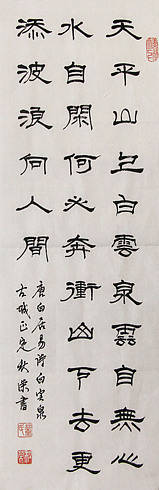 天平山上白雲泉雲自無心
水自閑何必奔衝山下去更
添波浪向人間
唐白居易詩白雲泉
古城正定秋榮書